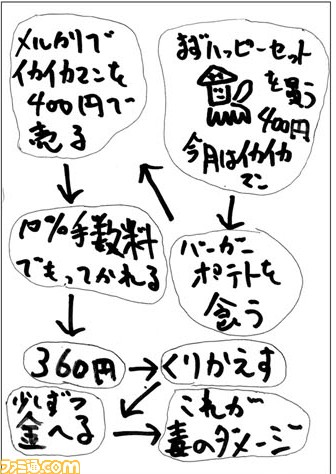 まずハッピーセット
を買う
400円
今月はイカイカ
マン
メルカリで
イカイカマンを
400円で
売る
ハンバーガー
ポテトを
食う
10%手数料
でもってかれる
360円
くりかえす
少しずつ
金へる
これが
毒のダメージ
ファミ通.com